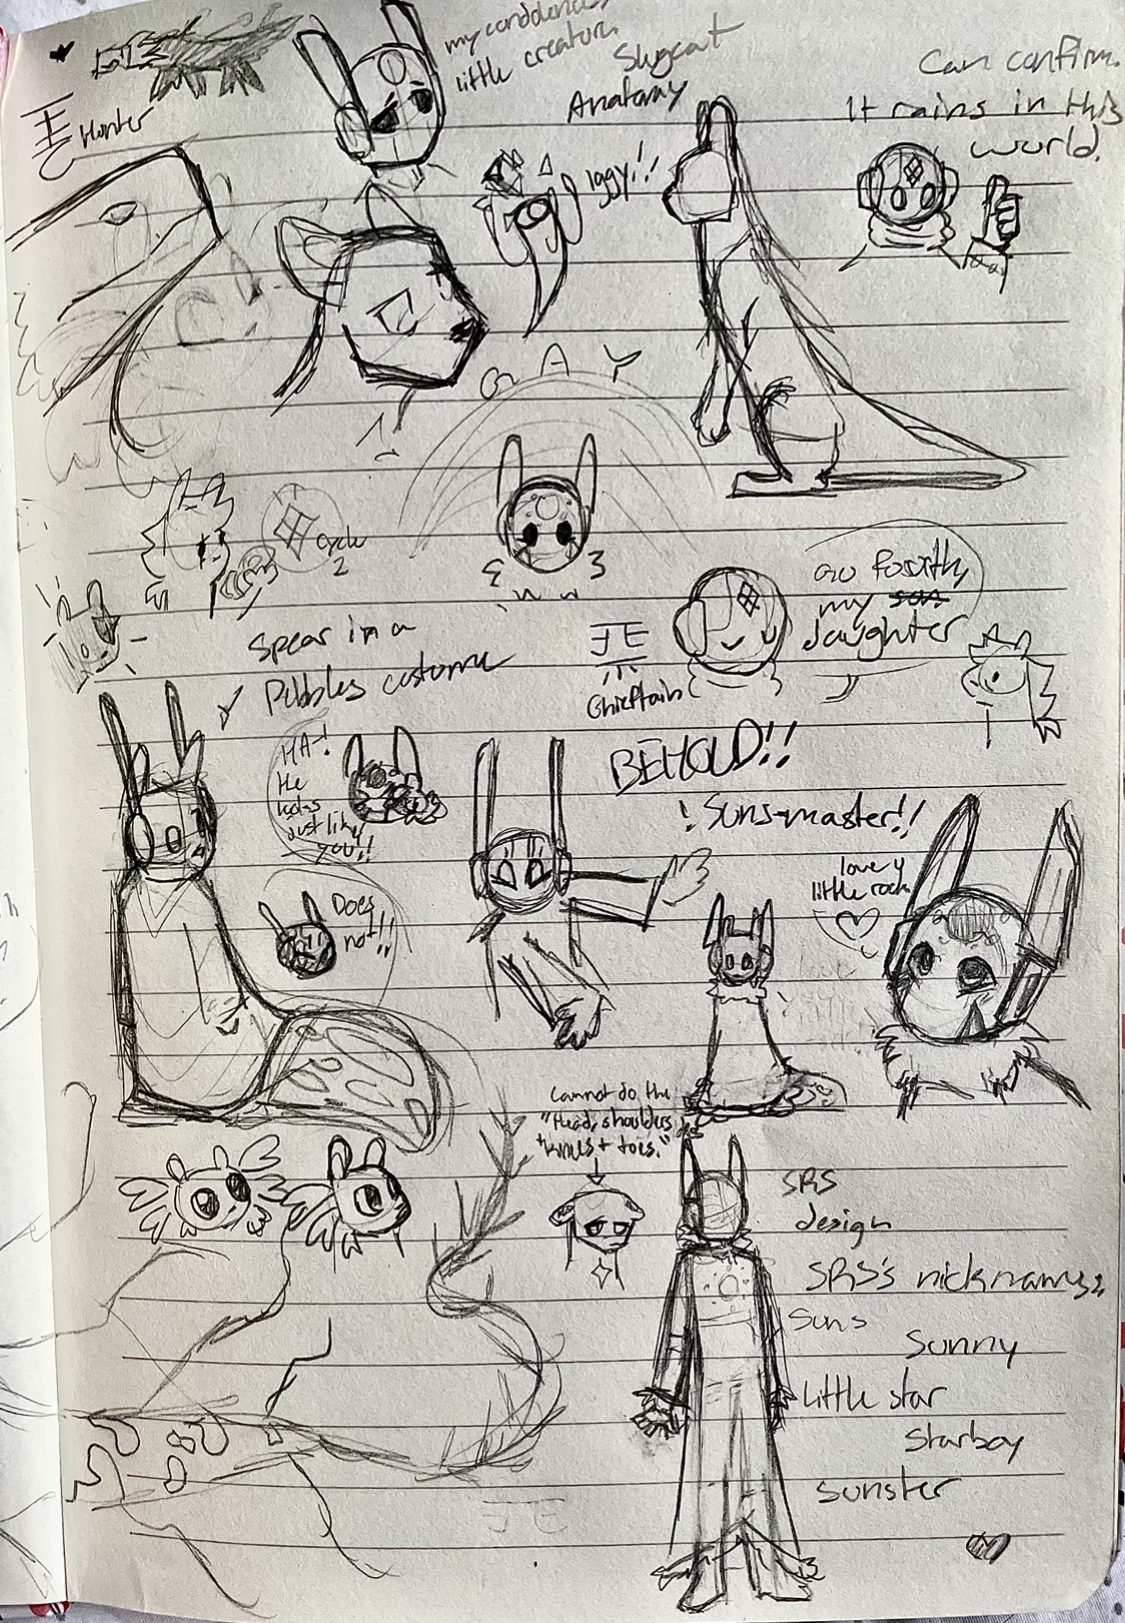 my condolences
little creature
Slugcat
Anatomy
Can confirm.
It rains in this
world.
Hunter
Iggy!!
GAY
Cycle
2
Spear in a
Pebbles costume
Chieftain
Go forth,
my son
daughter
HA-!
He
looks
just like
you!!
Does
not!!
BEHOLD!!
! Suns-master!!
love y
little rock
Cannot do the
"Head, shoulders
knees + toes."
SRS
design
SRS's nicknames:
Suns
Sunny
Little star
Starboy
Sunster